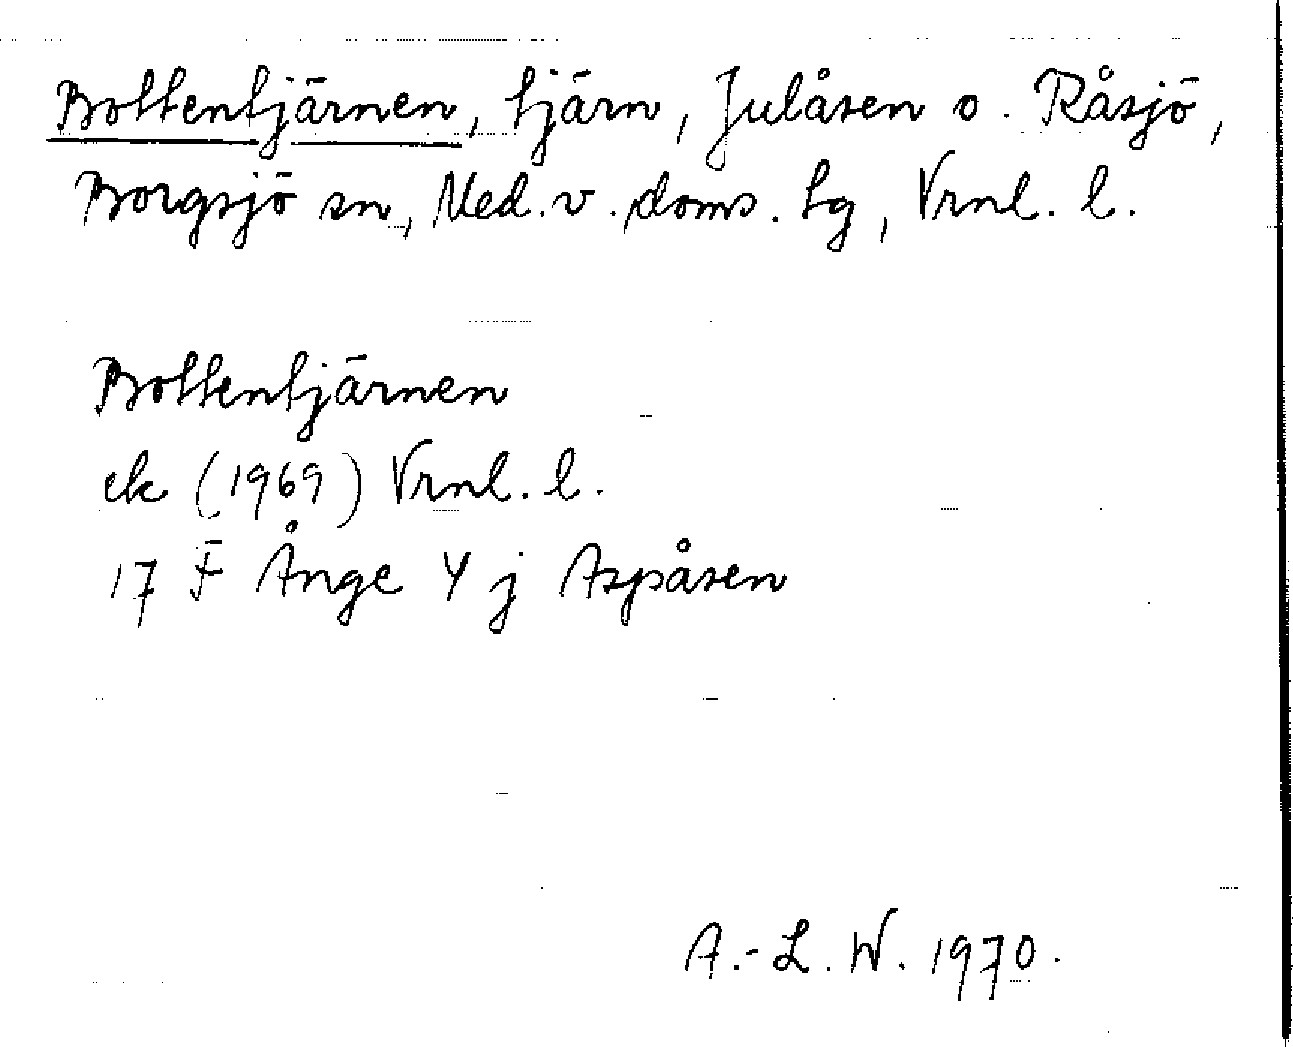 Bottentjärnen, tjärn, Julåsen o. Råsjö,
Borgsjö sn, Med. v. doms. tg, Vrnl. l.
Bottentjärnen
ek (1969) Vrnl. l.
17 F Ånge 4 j Aspåsen
A.-L. W. 1970.